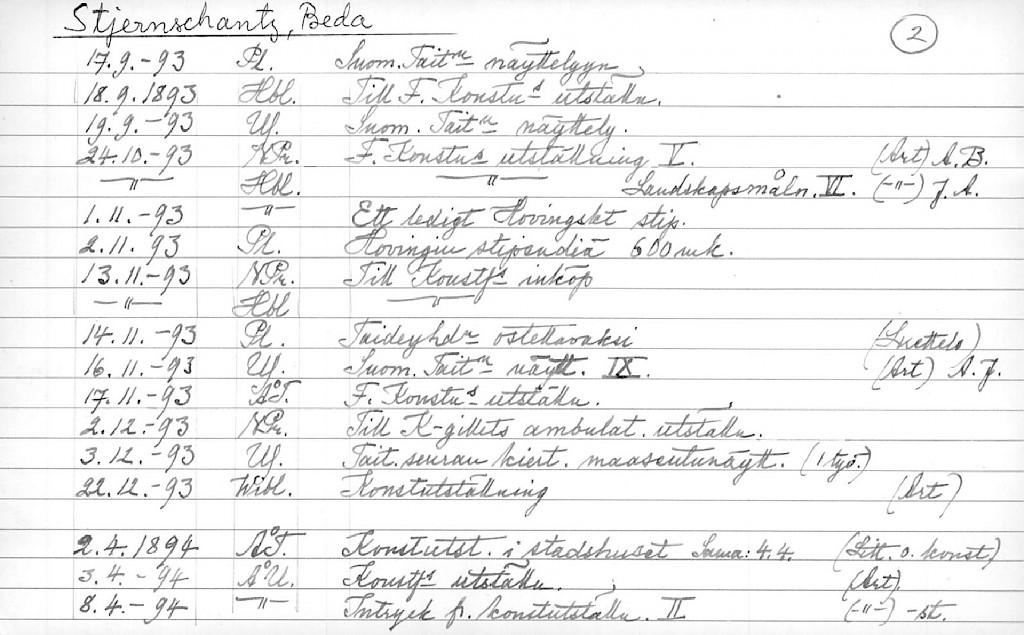 Stjernschantz, Beda
2
17.9.-93 Pl. Suom. Tait:n näyttelyyn
18.9.1893 Hbl. Till F. Konstn:s utställn.
19.9.-93 Uf. Suom. Tait:n näyttely.
24.10.-93 N.Pr. F. Konstn:s utställning V. (Art) A.B.
—"— Hbl. —"— Landskapsmåln. VI. (-"-) J.A.
1.11.-93 —"— Ett ledigt Hovingskt stip.
2.11.93 Pl. Hovingin stipendiä 600 mk.
13.11.-93 N.Pr. Till Konstf:s inköp
—"— Hbl —"—
14.11.-93 Pl. Taideyhd:n ostettavaksi (Luettelo)
16.11.-93 Uf. Suom. Tait:n näytt. IX. (Art) A.J.
17.11.-93 Å.T. F. Konstn:s utställn.
2.12.-93 N.Pr. Till K-gillets ambulat. utställn.
3.12.-93 Uf. Tait. seuran kiert. maaseutunäytt. (1 työ.)
22.12.-93 Wibl. Konstutställning (Art)
2.4.1894 Å.T. Konstutst. i stadshuset Sama: 4.4. (Litt. o. konst)
3.4.-94 Å.U. Konstf:s utställn. (Art)
8.4.-94 —"— Intryck fr. konstutställn. II (-"-) -st.